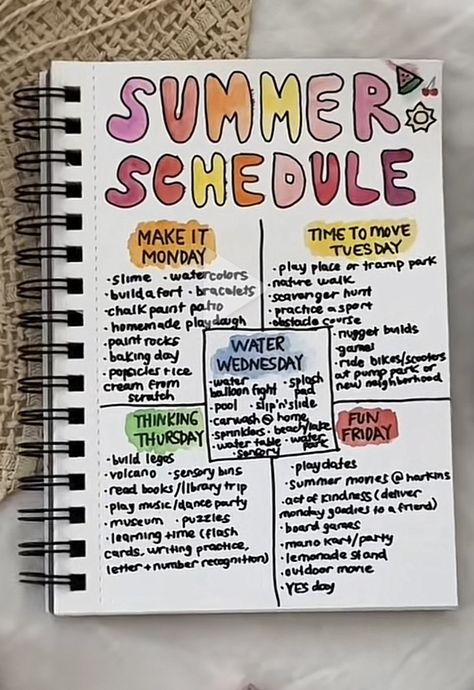 SUMMER
SCHEDULE
MAKE IT
MONDAY
· slime · watercolors
· build a fort · bracelets
· chalk paint patio
· homemade playdough
· paint rocks
· baking day
· popsicles + ice
cream from
scratch
TIME TO MOVE
TUESDAY
· play place or tramp park
· nature walk
· scavanger hunt
· practice a sport
· obstacle course
· nugget builds
· games
· ride bikes/scooters
at pump park or
new neighborhood
WATER
WEDNESDAY
· water
balloon fight · splash
pad
· pool · slip'n'slide
· carwash @ home
· sprinklers · beach/lake
· water table · water
park
· sensory
THINKING
THURSDAY
· build legos
· volcano · sensory bins
· read books/library trip
· play music/dance party
· museum · puzzles
· learning time (flash
cards, writing practice,
letter + number recognition)
FUN
FRIDAY
· playdates
· summer movies @ harkins
· act of kindness (deliver
monday goodies to a friend)
· board games
· mario kart/party
· lemonade stand
· outdoor movie
· YES day